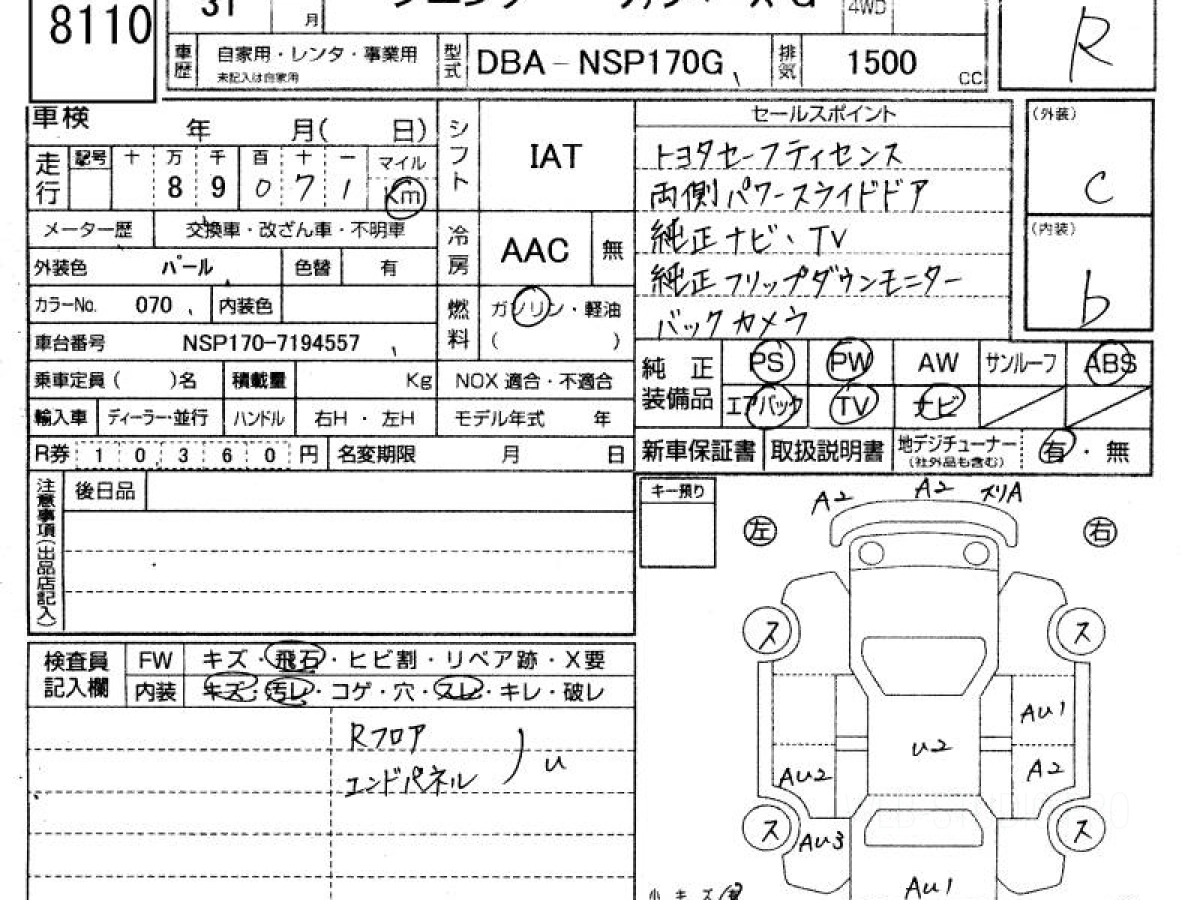 8110
31
月
4WD
R
車歴
自家用・レンタ・事業用
未記入は自家用
型式
DBA-NSP170G
排気
1500
CC
車検
年 月( 日)
シフト
IAT
セールスポイント
トヨタセーフティセンス
両側パワースライドドア
純正ナビ、TV
純正フリップダウンモニター
バックカメラ
(外装)
C
(内装)
b
走行
記号 十 万 千 百 十 一 マイル
8 9 0 7 1 Km
メーター歴
交換車・改ざん車・不明車
冷房
AAC
無
外装色
パール
色替
有
カラーNo.
070
内装色
燃料
ガソリン・軽油
( )
車台番号
NSP170-7194557
乗車定員( )名
積載量
Kg
NOX 適合・不適合
純正装備品
PS PW AW サンルーフ ABS
エアバック TV ナビ
輸入車
ディーラー・並行
ハンドル
右H ・ 左H
モデル年式 年
R券
1 0,3 6 0 円
名変期限
月 日
新車保証書
取扱説明書
地デジチューナー
(社外品も含む)
有・無
注意事項(出品店記入)
後日品
キー預り
A2 A2 スリA
左
右
ス ス
AU1
U2
AU2
A2
ス
AU3
ス
AU1
小キズ
検査員記入欄
FW
キズ・飛石・ヒビ割・リペア跡・X要
内装
キズ・汚レ・コゲ・穴・スレ・キレ・破レ
Rフロア
エンドパネル
) u